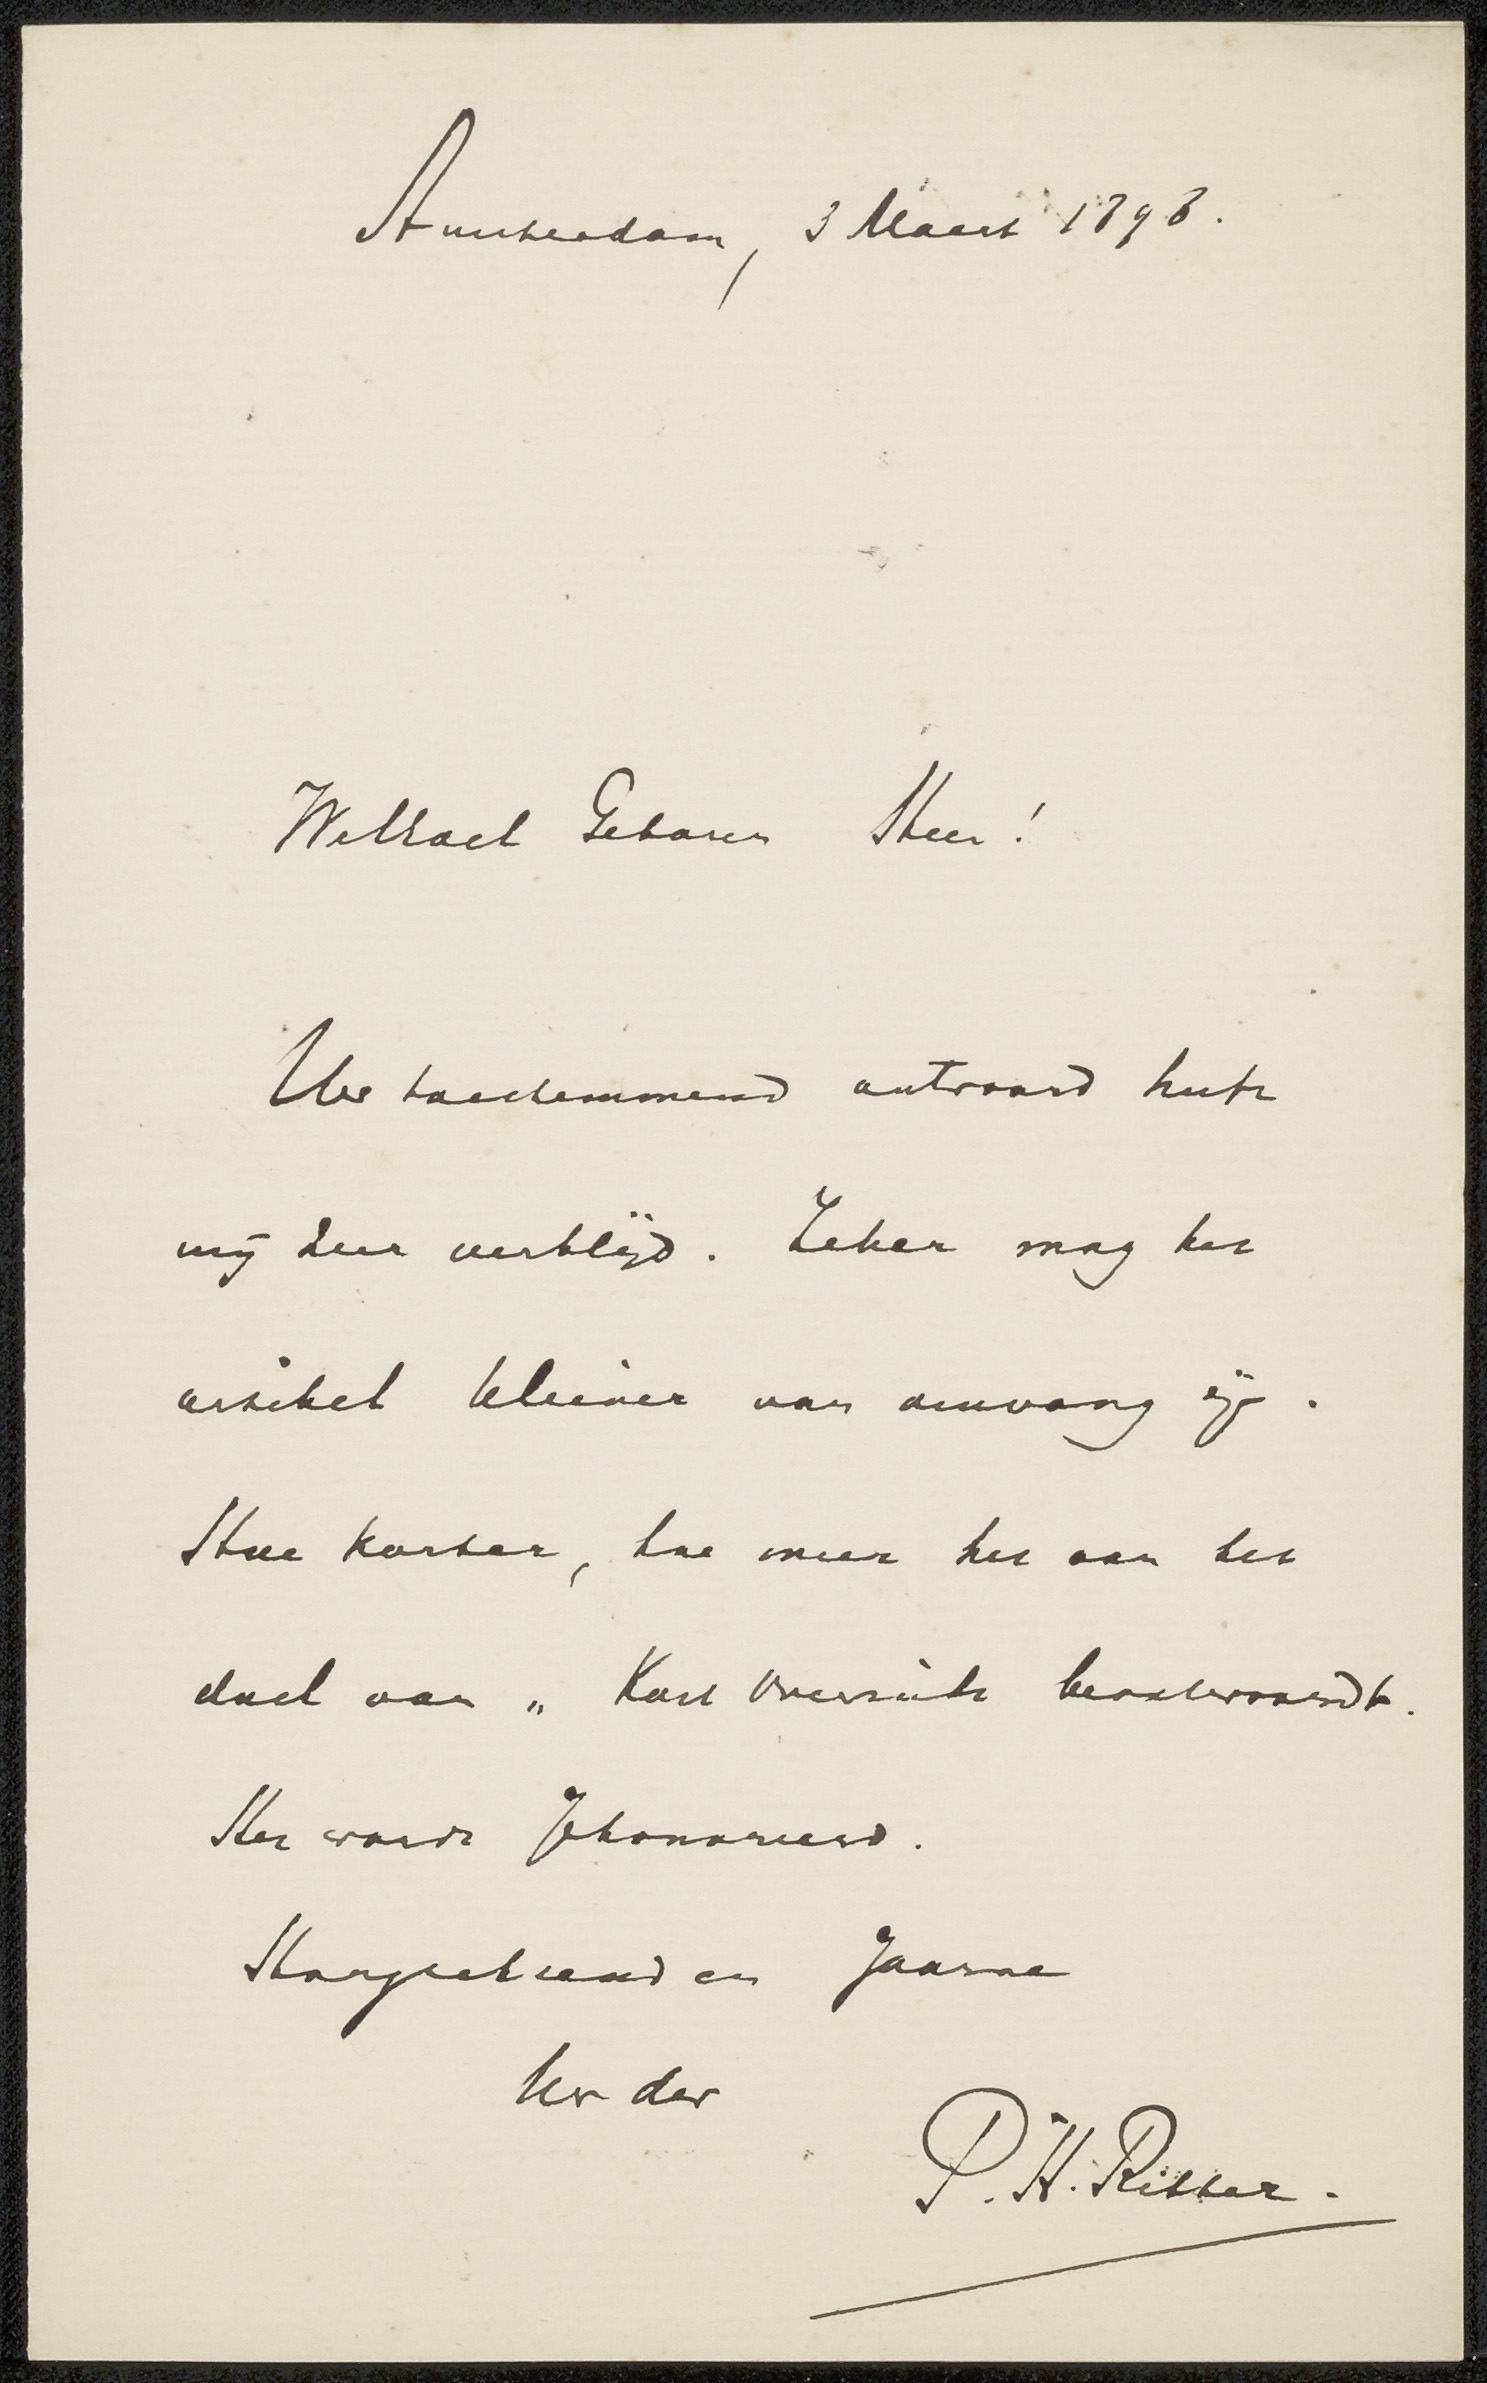 Amsterdam, 3 Maart 1898.
WelEdel Geboren Heer!
Uw toestemmend antwoord heeft
mij zeer verblijd. Zeker mag het
artikel kleiner van omvang zijn.
Hoe korter, hoe meer het aan het
doel van „ Kort Overzicht beantwoordt.
Het wordt gehonoreerd.
Hoogachtend en gaarne
Uw dw
P. H. Ritter.